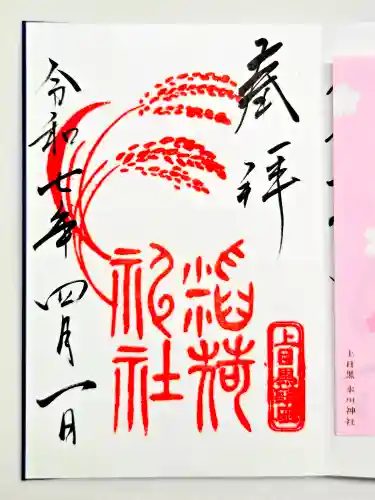 奉拝
稲荷
祀社
上目黒鎮座
令和七年四月一日
上目黒 氷川神社